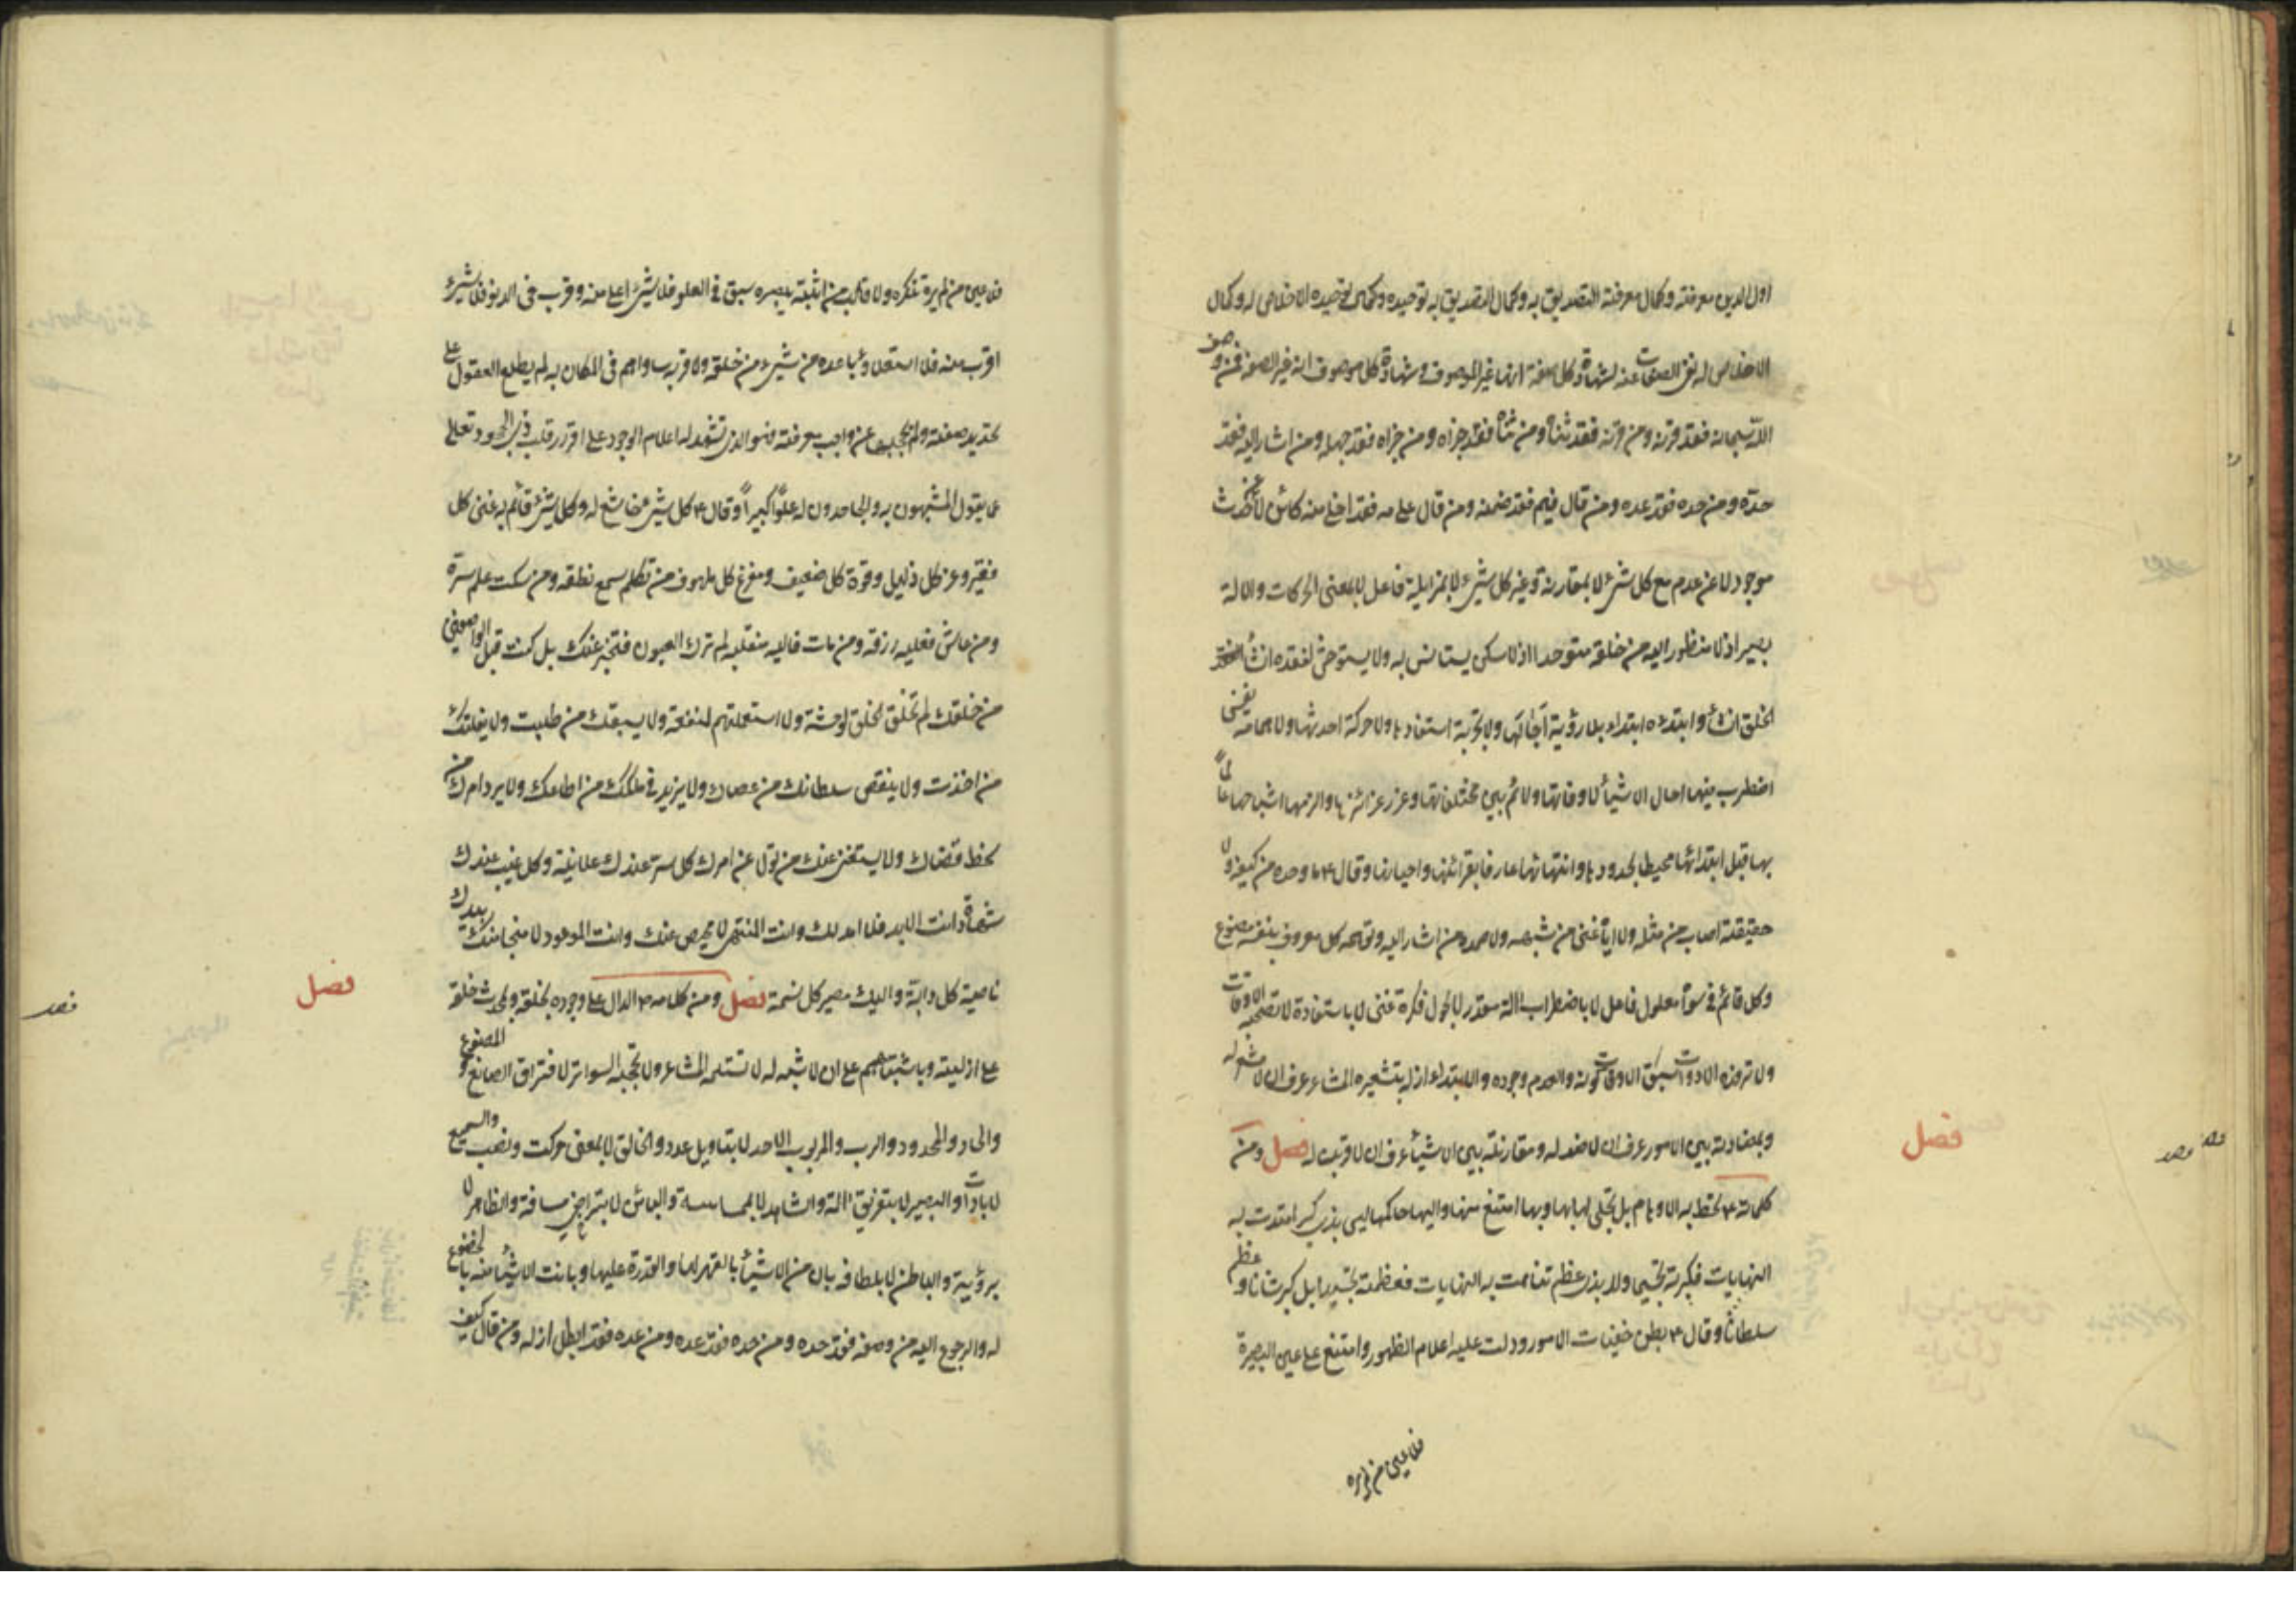 اول الدين معرفته وكمال معرفته التصديق به وكمال التصديق به توحيده وكمال توحيده الاخلاص له وكمال
الاخلاص له نفى الصفات عنه لشهادة كل صفة انها غير الموصوف وشهادة كل موصوف انه غير الصفة فمن وصف
الله سبحانه فقد قرنه ومن قرنه فقد ثناه ومن ثناه فقد جزاه ومن جزاه فقد جهله ومن اشار اليه فقد
حده ومن حده فقد عده ومن قال فيم فقد ضمنه ومن قال على مه فقد اخلى منه كائن لا عن حدث
موجود لا عن عدم مع كل شئ لا بمقارنة وغير كل شئ لا بمزايلة فاعل لا بمعنى الحركات والالة
بصير اذ لا منظور اليه من خلقه متوحد اذ لا سكن يستانس به ولا يستوحش لفقده انشأ
الخلق انشاء وابتدئه ابتداء بلا رؤية اجالها ولا تجربة استفادها ولا حركة احدثها ولا همامة نفس
اضطرب فيها احال الاشياء لاوقاتها ولائم بين مختلفاتها وغرز غرائزها والزمها اشباحها عالماً
بها قبل ابتدائها محيطا بحدودها وانتهائها عارفا بقرائنها واحيائها وقال ٤ ما وحده من كيفه ولا
حقيقته اصاب من مثله ولا اياه عنى من شبهه ولا صمده من اشار اليه وتوهمه كل معروف بنفسه مصنوع
وكل قائم فى سواه معلول فاعل لا باضطراب الة مقدر لا بجول فكرة غنى لا باستفادة لا تصحبه الاوقات
ولا ترفده الادوات سبق الاوقات كونه والعدم وجوده والابتداء ازله بتشعيره المشاعر عرف ان لا مشعر له
وبمضادته بين الامور عرف ان لا ضد له ومقارنته بين الاشياء عرف ان لا قرين له فصل ومن
كلامه ٤ لم تحط به الاوهام بل تجلى لها بها وبها امتنع منها واليها حاكمها ليس بذى كبر امتدت به
النهايات فكبرته تجسيما ولا بذى عظم تناهت به النهايات فعظمته تجسيدا بل كبر شانا وعظم
سلطانا وقال ٤ بطن خفيات الامور ودلت عليه اعلام الظهور وامتنع على عين البصيرة
فلا عين من لم يره
فصل
فلا عين من لم يره تنكره ولا قلب من اثبته يبصره سبق فى العلو فلا شئ اعلى منه وقرب فى الدنو فلا شئ
اقرب منه فلا استعلاؤه باعده من شئ من خلقه ولا قربه ساواهم فى المكان به لم يطلع العقول على
تحديد صفته ولم يحجبها عن واجب معرفته فهو الذى تشهد له اعلام الوجود على اقرار قلب ذى الجحود تعالى
عما يقول المشبهون به والجاحدون له علوًا كبيرًا وقال ٤ كل شئ خاشع له وكل شئ قائم به غنى كل
فقير وعز كل ذليل وقوة كل ضعيف ومفزع كل ملهوف من تكلم سمع نطقه ومن سكت علم سره
ومن عاش فعليه رزقه ومن مات فاليه منقلبه لم ترك العيون فتخبر عنك بل كنت قبل الواصفين
من خلقك لم تخلق الخلق لوحشة ولا استعملتهم لمنفعة ولا يسبقك من طلبت ولا يفلتك
من اخذت ولا ينقص سلطانك من عصاك ولا يزيد فى ملكك من اطاعك ولا يرد امرك من
سخط قضاك ولا يستغنى عنك من تولى عن امرك كل سر عندك علانية وكل غيب عندك
شهادة انت الابد فلا امد لك وانت المنتهى لا محيص عنك وانت الموعود لا منجا منك بيدك
ناصية كل دابة واليك مصير كل نسمة فصل ومن كلامه ٤ الدال على وجوده بخلقه وبمحدث خلقه
على ازليته وباشتباههم على ان لا شبه له لا تستلمه المشاعر ولا تحجبه السواتر لافتراق الصانع والمصنوع
والحاد والمحدود والرب والمربوب الاحد لا بتاويل عدد والخالق لا بمعنى حركت ونصب والسميع
لا باداة والبصير لا بتفريق الة والشاهد لا بمماسة والبائن لا بتراخى مسافة والظاهر لا
برؤية والباطن لا بلطافه بان من الاشياء بالقهر لها والقدرة عليها وبانت الاشياء منه بالخضوع
له والرجوع اليه من وصفه فقد حده ومن حده فقد عده ومن عده فقد ابطل ازله ومن قال كيف
فصل